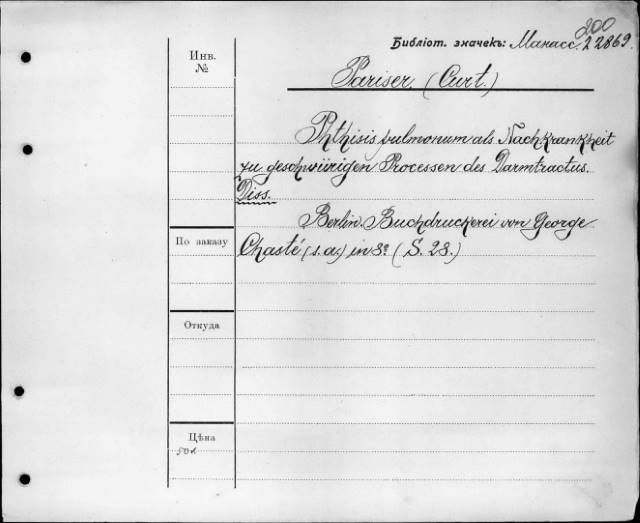 200
Библіот. значекъ: Манасс. 22869.
Инв. №
Pariser. (Curt.)
Phthisis pulmonum als Nachkrankheit
zu geschwürigen Processen des Darmtractus.
Diss.
Berlin. Buchdruckerei von George
По заказу
Chasté (s. a.) in 8º (S. 28.)
Откуда
Цѣна